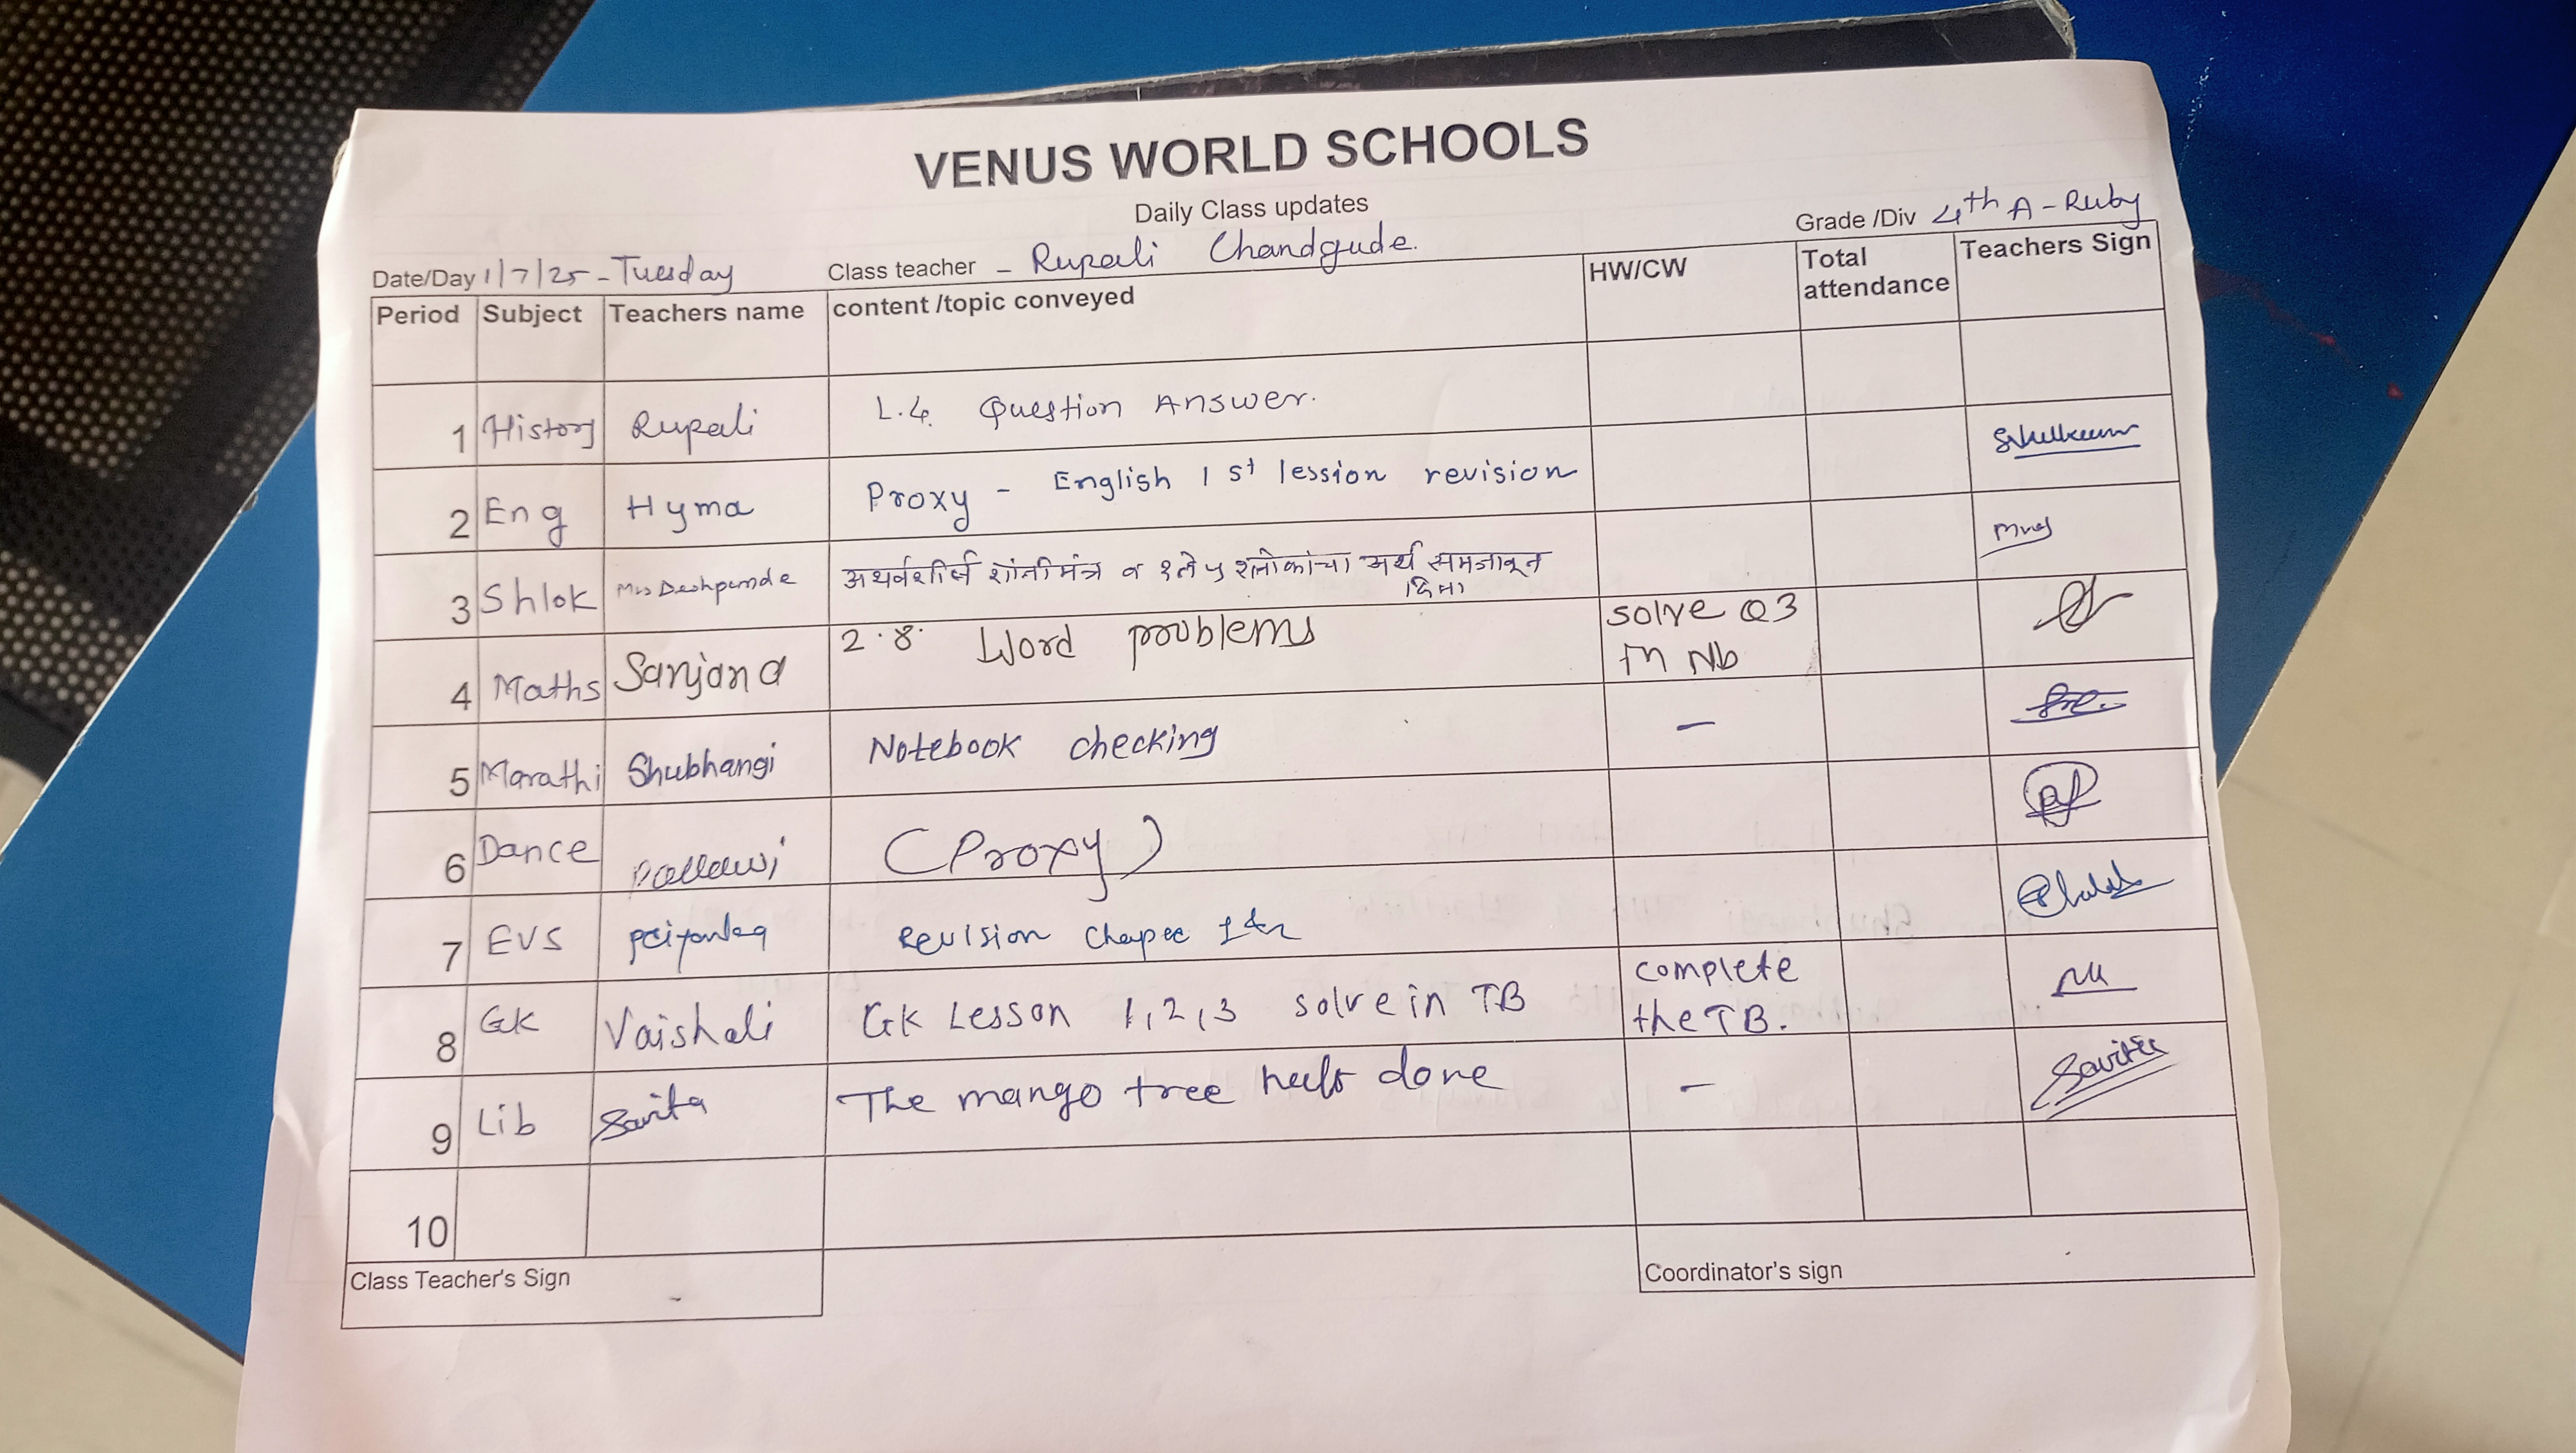 VENUS WORLD SCHOOLS
Daily Class updates
Date/Day 1/7/25 - Tuesday Class teacher - Rupali Chandgude. Grade /Div 4th A - Ruby
Period Subject Teachers name content /topic conveyed HW/CW Total attendance Teachers Sign
1 History Rupali L.4. Question Answer.
2 Eng Hyma Proxy - English 1 st lession revision
3 Shlok Mrs Deshpande अथर्वशीर्ष शांतीमंत्र व १ ते ५ श्लोकांचा अर्थ समजावून दिला
4 Maths Sanjana 2.8. Word problems solve Q3 in Nb
5 Marathi Shubhangi Notebook checking -
6 Dance Pallawi (Proxy)
7 EVS Priyanka Revision 1 & 2
8 GK Vaishali GK Lesson 1, 2, 3 solve in TB complete the TB.
9 Lib Savita The mango tree done - Savita
10
Class Teacher's Sign Coordinator's sign